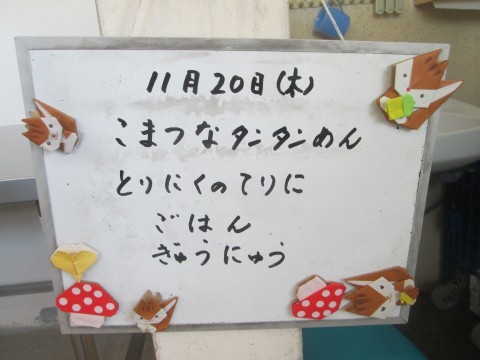 11月20日(木)
こまつなタンタンめん
とりにくのてりに
ごはん
ぎゅうにゅう